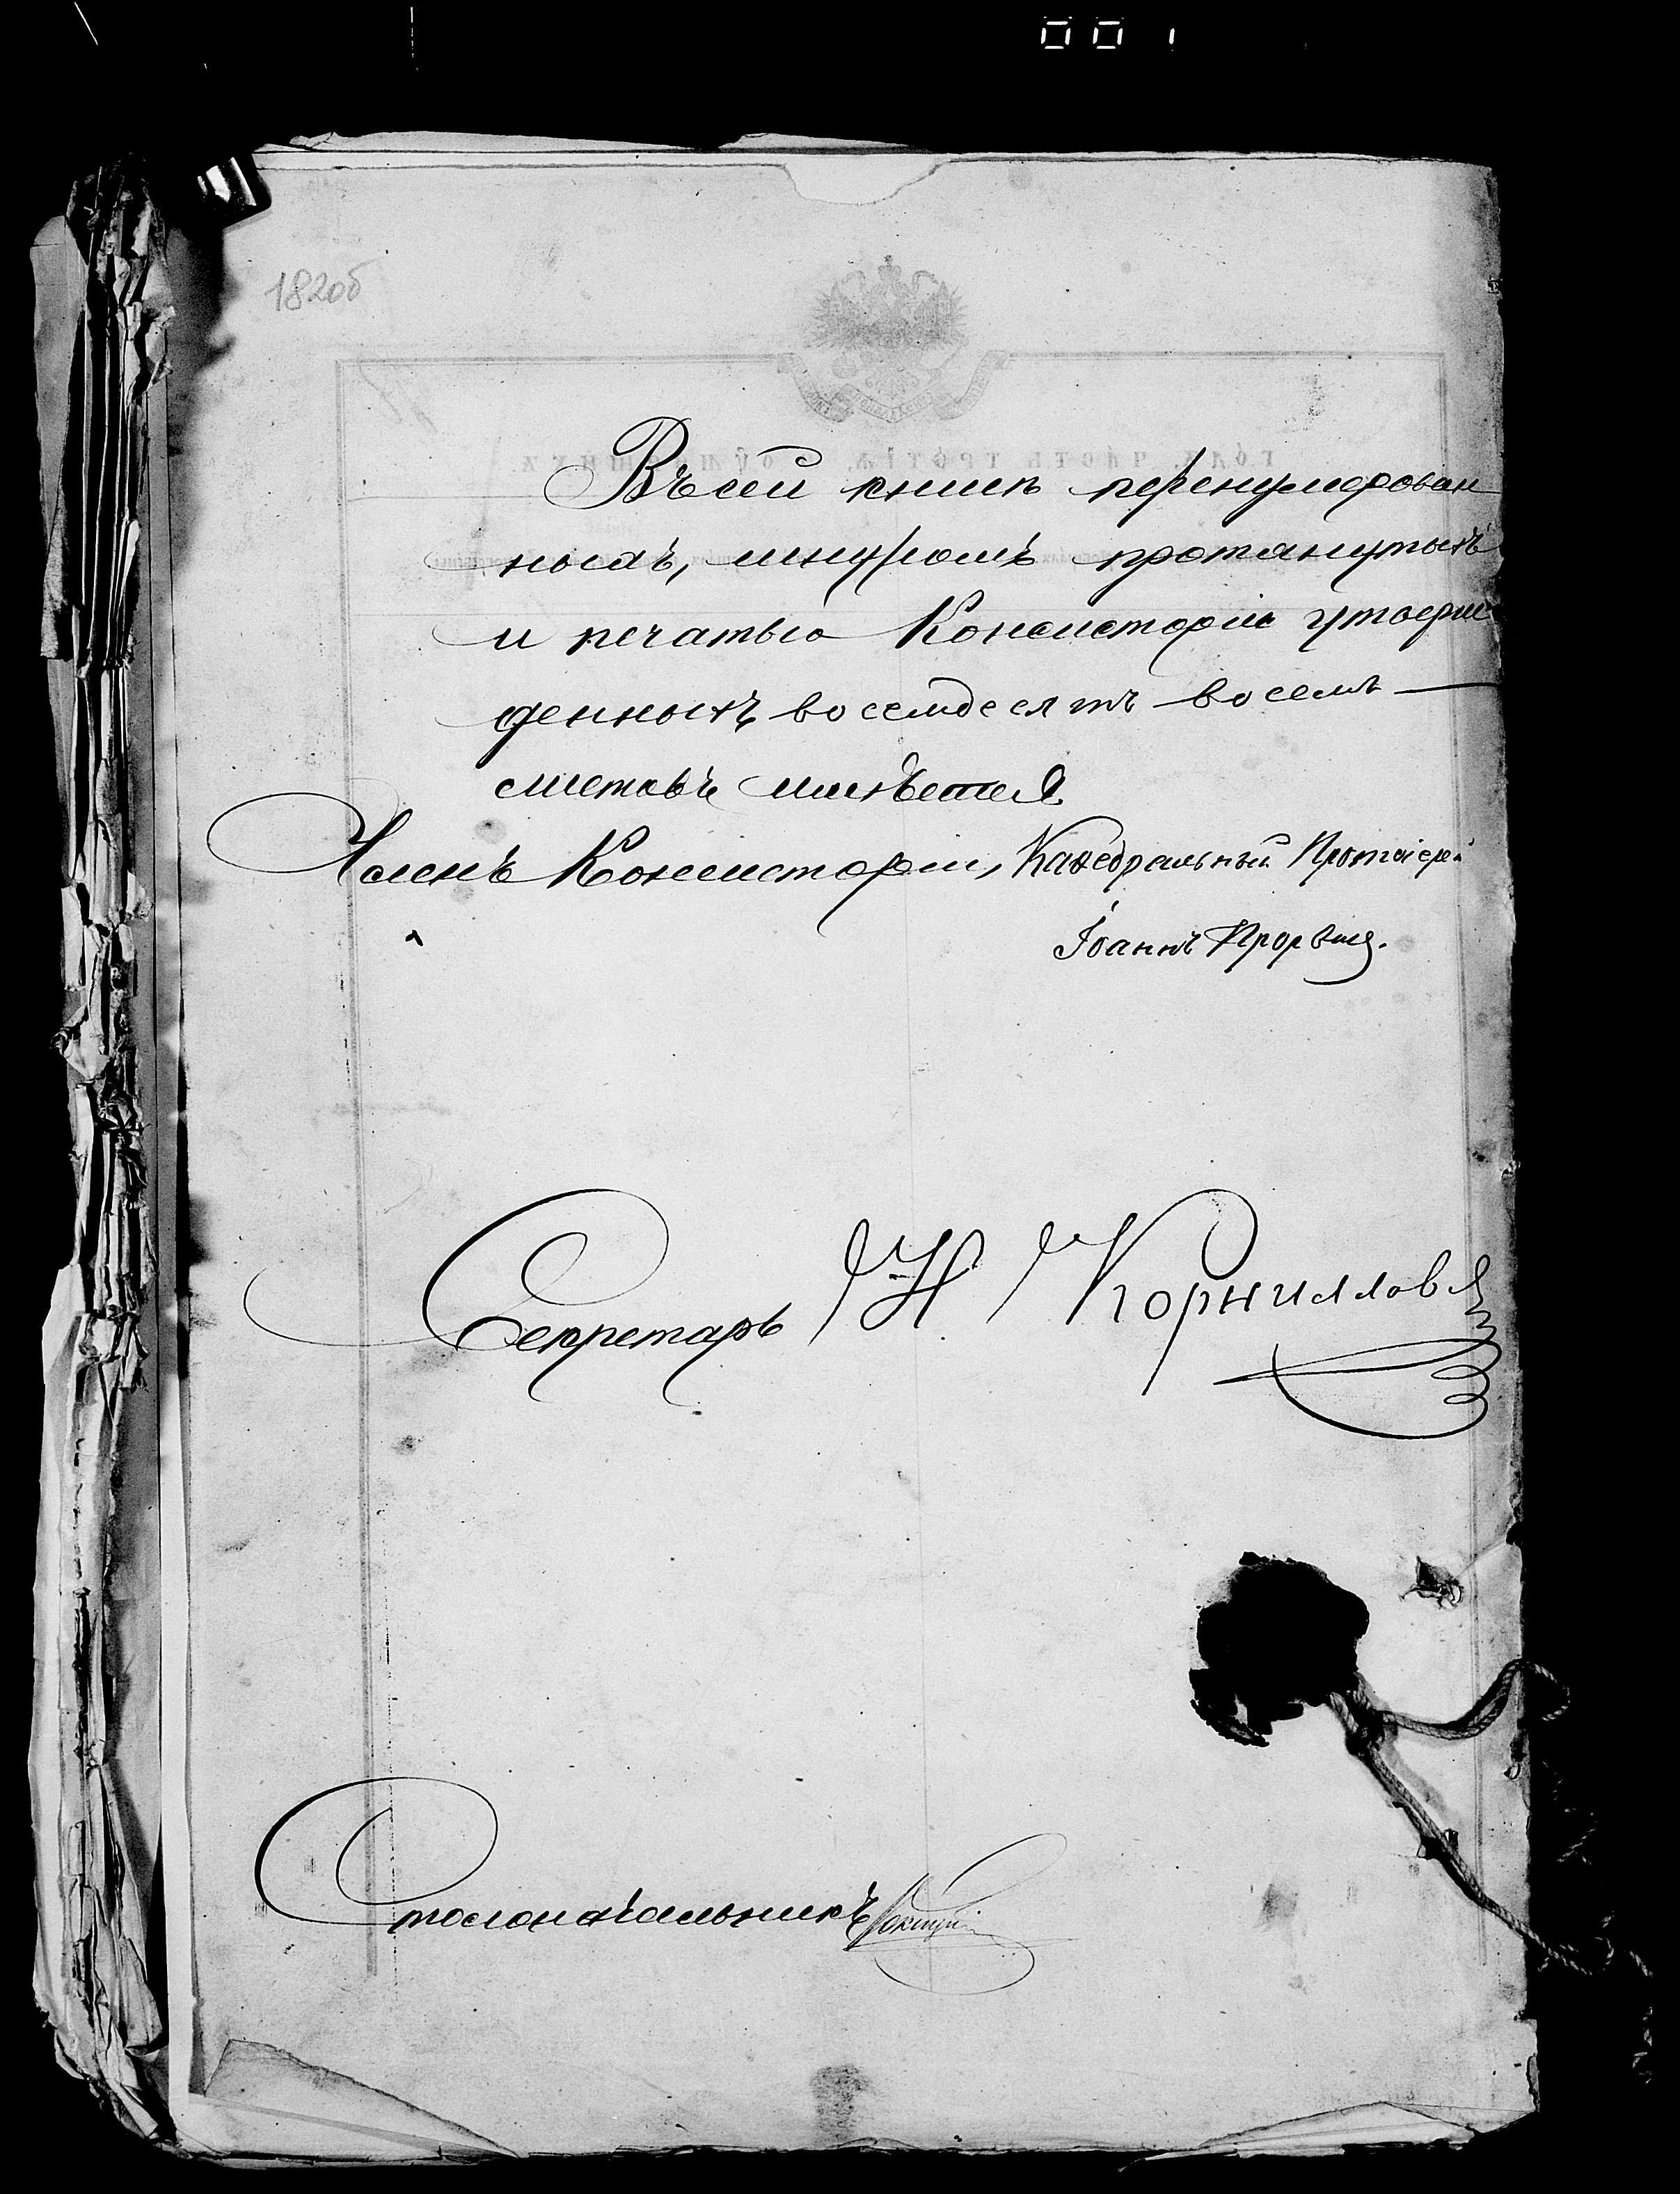 001
182об
Въ сей книгѣ перенумерован
ныхъ, шнуромъ протянутыхъ
и печатью Консисторіи утверж
денныхъ восемдесятъ восемь
листовъ имѣется
Членъ Консисторіи, Каѳедральный Протоіерей
Іоаннъ
Секретарь Н Корниловъ
Столоначальникъ